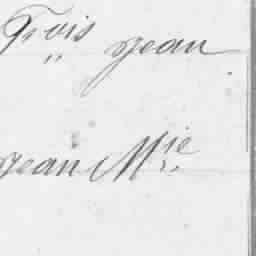 Frois Jean
Jean Mie